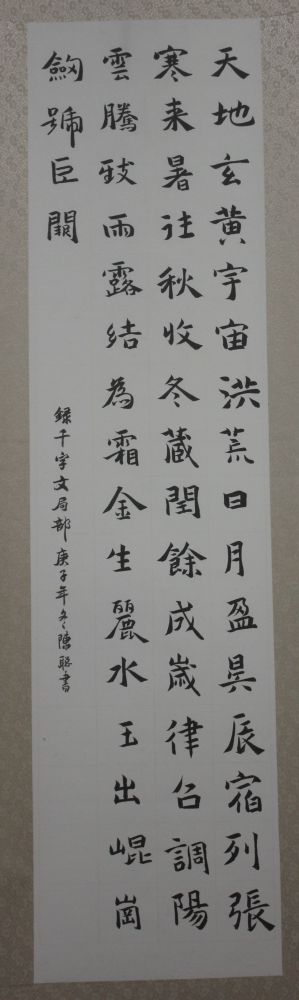 天地玄黄宇宙洪荒日月盈昃辰宿列張
寒来暑往秋收冬藏閏餘成嵗律召調陽
雲騰致雨露結為霜金生麗水玉出崐崗
劒號巨闕
録千字文局部 庚子年冬陳聡書